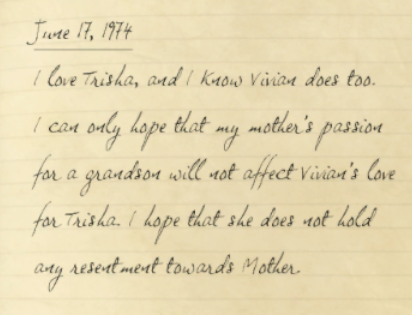 June 17, 1974
I love Trisha, and I know Vivian does too.
I can only hope that my mother's passion
for a grandson will not affect Vivian's love
for Trisha. I hope that she does not hold
any resentment towards Mother.